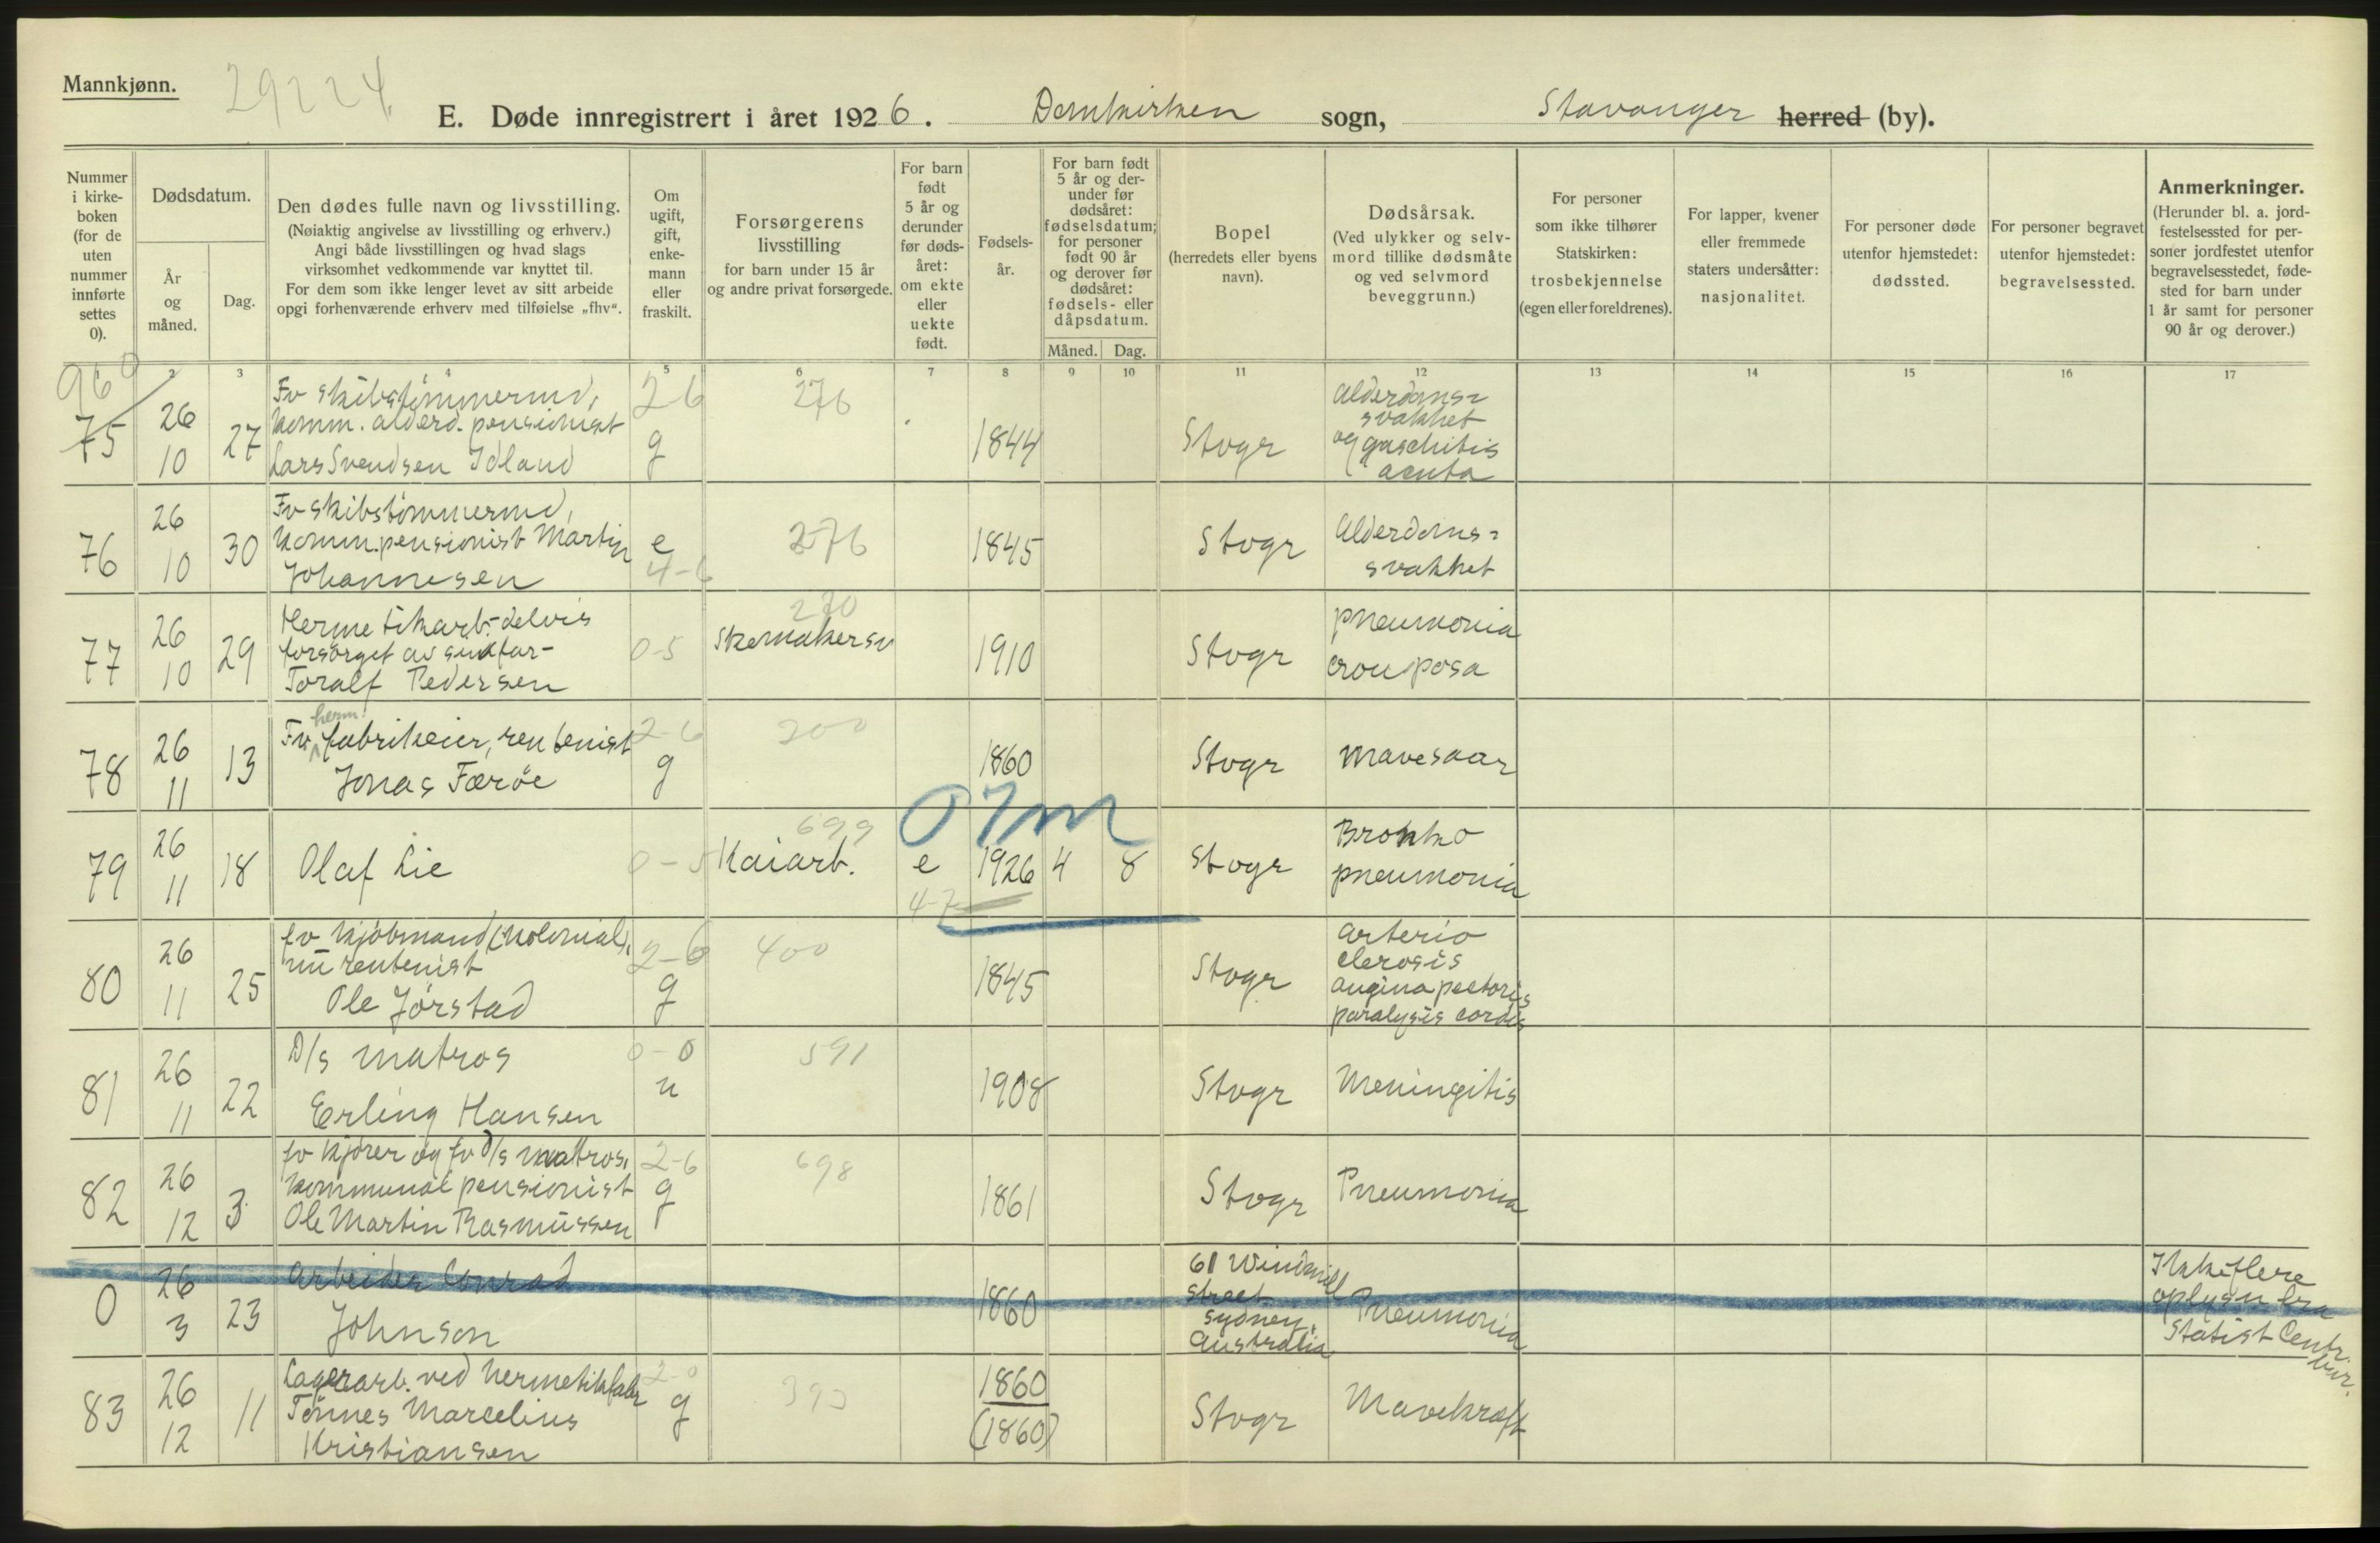 Mannkjønn.
29224.
E. Døde innregistrert i året 1926. Domkirken sogn, Stavanger herred (by).
Nummer i kirke- boken (for de uten nummer innførte settes 0).
Dødsdatum.
År og måned.
Dag.
Den dødes fulle navn og livsstilling.
(Nøiaktig angivelse av livsstilling og erhverv.)
Angi både livsstillingen og hvad slags
virksomhet vedkommende var knyttet til.
For dem som ikke lenger levet av sitt arbeide
opgi forhenværende erhverv med tilføielse „fhv“.
Om ugift, gift, enke- mann eller fraskilt.
Forsørgerens livsstilling
for barn under 15 år
og andre privat forsørgede.
For barn født 5 år og derunder før døds- året: om ekte eller uekte født.
Fødsels- år.
For barn født 5 år og der- under før dødsåret: fødselsdatum; for personer født 90 år og derover før dødsåret: fødsels- eller dåpsdatum.
Måned.
Dag.
Bopel
(herredets eller byens navn).
Dødsårsak.
(Ved ulykker og selv- mord tillike dødsmåte og ved selvmord beveggrunn.)
For personer som ikke tilhører Statskirken: trosbekjennelse (egen eller foreldrenes).
For lapper, kvener eller fremmede staters undersåtter: nasjonalitet.
For personer døde utenfor hjemstedet: dødssted.
For personer begravet utenfor hjemstedet: begravelsessted.
Anmerkninger.
(Herunder bl. a. jord- festelsessted for per- soner jordfestet utenfor begravelsesstedet, føde- sted for barn under 1 år samt for personer 90 år og derover.)
2 3 4 5 6 7 8 9 10 11 12 13 14 15 16 17
960
75 26 10 27 Fv skibstømmermd, komm. alderd. pensionist Lars Svendsen Idland 2-6 g 276 1844 Stvgr Alderdoms= svakhet og acuta
76 26 10 30 Fv skibstømmermd, komm. pensionist Martin Johannesen e 4-6 276 1845 Stvgr Alderdoms= svakhet
77 26 10 29 Hermetikarb.-delvis forsørget av sin far- Toralf Pedersen 0-5 270 Skomakersv 1910 Stvgr pneumonia crouposa
78 26 11 13 Fv herm. fabrikeier, rentenist Jonas Færöe 2-6 g 200 1860 Stvgr Mavesaar
79 26 11 18 Olaf Lie 0-5 699 Kaiarb. e 4-7 07m 1926 4 8 Stvgr Bronko pneumonia
80 26 11 25 fv kjøbmand (kolonial), nu rentenist Ole Jörstad 2-6 g 400 1845 Stvgr Arterio clerosis angina pectoris paralysis cordis
81 26 11 22 D/s matros Erling Hansen 0-0 u 591 1908 Stvgr Meningitis
82 26 12 3 fv kjører og fv d/s matros, kommunal pensionist Ole Martin Rasmussen 2-6 g 698 1861 Stvgr Pneumonia
0 26 3 23 Arbeider Conrad Johnson 1860 61 Windmill street Sydney, Australia Pneumonia Ikke flere oplysn fra Statist Centr. bur.
83 26 12 11 Lagerarb. ved hermetikfabr Tönnes Marcelius Kristiansen 2-0 g 1860 (1860) Stvgr Mavekræft